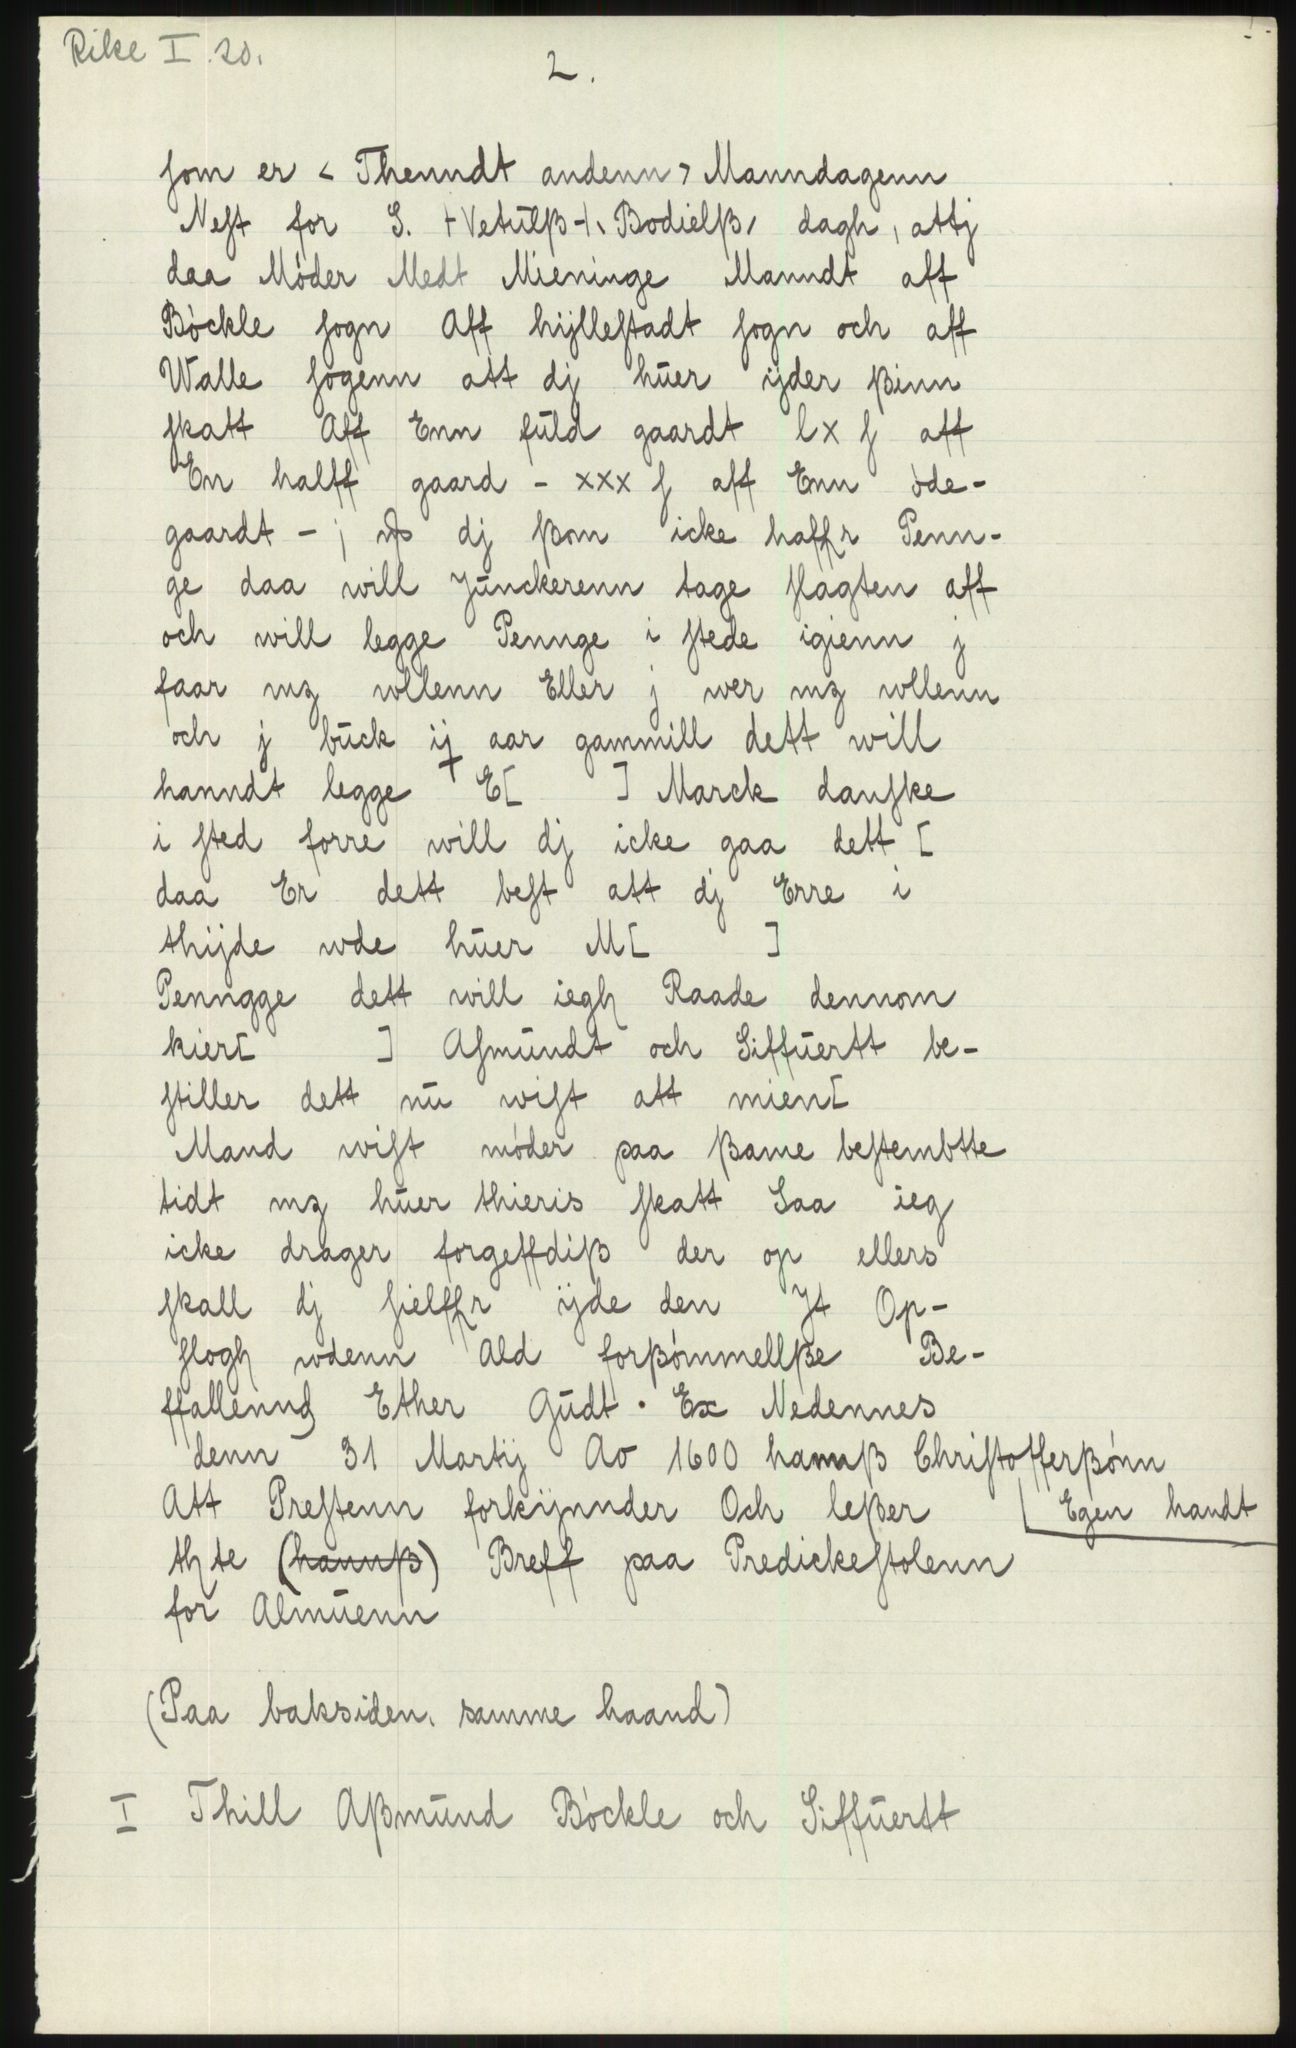 Rike I. 20.
2.
som er < Thenndt andenn > Manndagenn
Nest for S. +Vetulß+ \Bodielß/ dagh, attj
daa Möder Medt Mieninge Manndt aff
Böckle sogn Aff hijllestadt sogn och aff
Walle sogenn att dj huer ijder ßinn
skatt Aff Enn fuld gaardt lx s aff
En halff gaard - xxx s aff Enn öde-
gaardt - j dj ßom icke haffr Penn-
ge daa will Junckerenn tage slagten aff
och will legge Pennge i stede igienn j
faar mz wllenn Eller j wer mz wllenn
och j buck ij aar gammill dett will
hanndt legge + E[ ] Marck danske
i sted forre will dj icke gaa dett [
daa Er dett best att dj Erre i
thijde wde huer M[ ]
Penngge dett will iegh Raade dennom
kier[ ] Asmundt och Siffuertt be-
stiller dett nu wist att mien[
Mand wist möder paa ßame bestembtte
tidt mz huer thieris skatt Saa ieg
icke drager forgeffdiß der op ellers
skall dj sielffr ijde den It Op-
slogh wdenn Ald forßömmellße Be-
ffallennd Ether Gudt. Ex Nedennes
denn 31 Martij Ao 1600 hannß Christofferßönn
Att Prestenn forkijnnder Och leßer Egen handt
thte (hannß) Breff paa Predickestolenn
for Almuenn
(Paa baksiden, samme haand)
I Thill Aßmund Böckle och Siffuertt